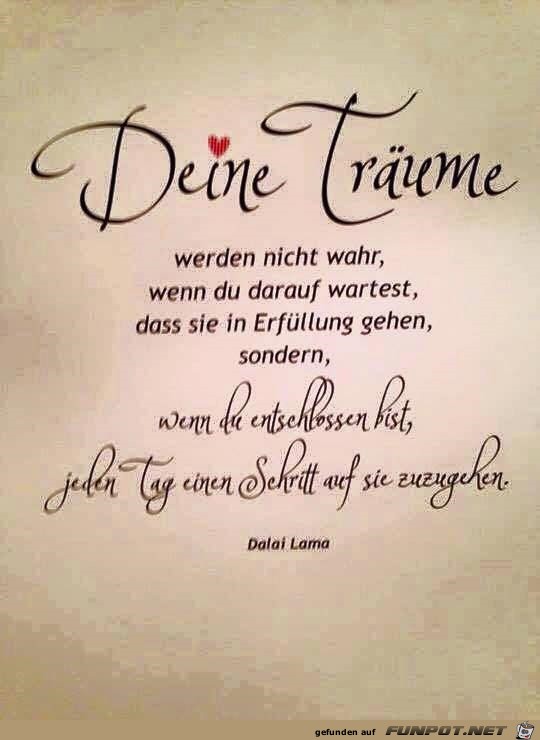 Deine Träume
werden nicht wahr,
wenn du darauf wartest,
dass sie in Erfüllung gehen,
sondern,
wenn du entschlossen bist,
jeden Tag einen Schritt auf sie zuzugehen.
Dalai Lama
gefunden auf FUNPOT.NET